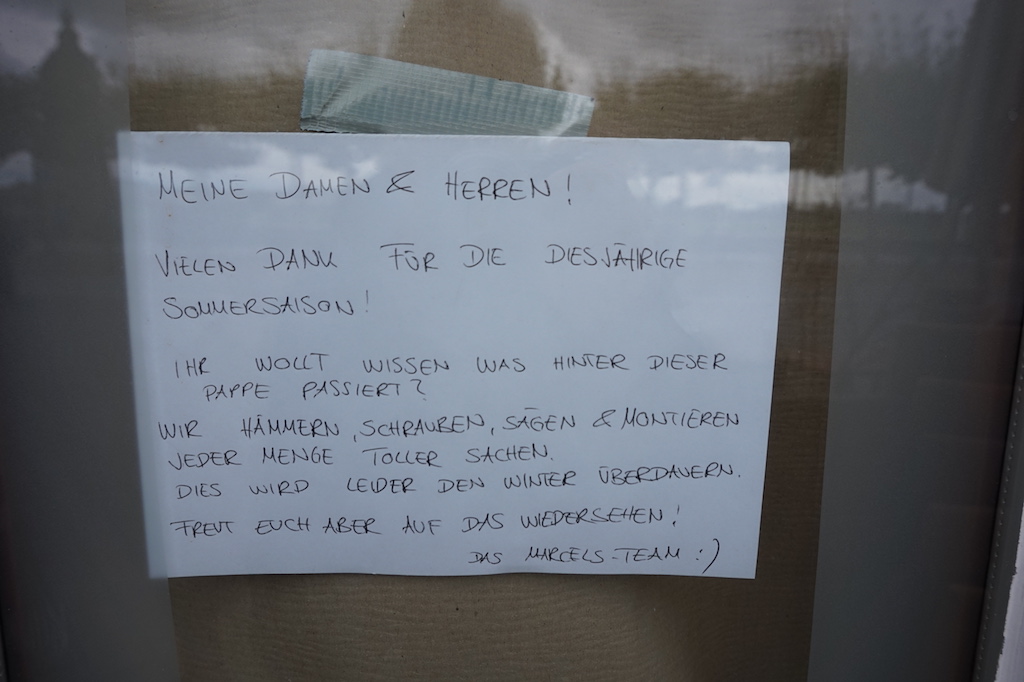 MEINE DAMEN & HERREN!
VIELEN DANK FÜR DIE DIESJÄHRIGE
SOMMERSAISON!
IHR WOLLT WISSEN WAS HINTER DIESER
PAPPE PASSIERT?
WIR HÄMMERN, SCHRAUBEN, SÄGEN & MONTIEREN
JEDER MENGE TOLLER SACHEN.
DIES WIRD LEIDER DEN WINTER ÜBERDAUERN.
FREUT EUCH ABER AUF DAS WIEDERSEHEN!
DAS MARCELS-TEAM :)